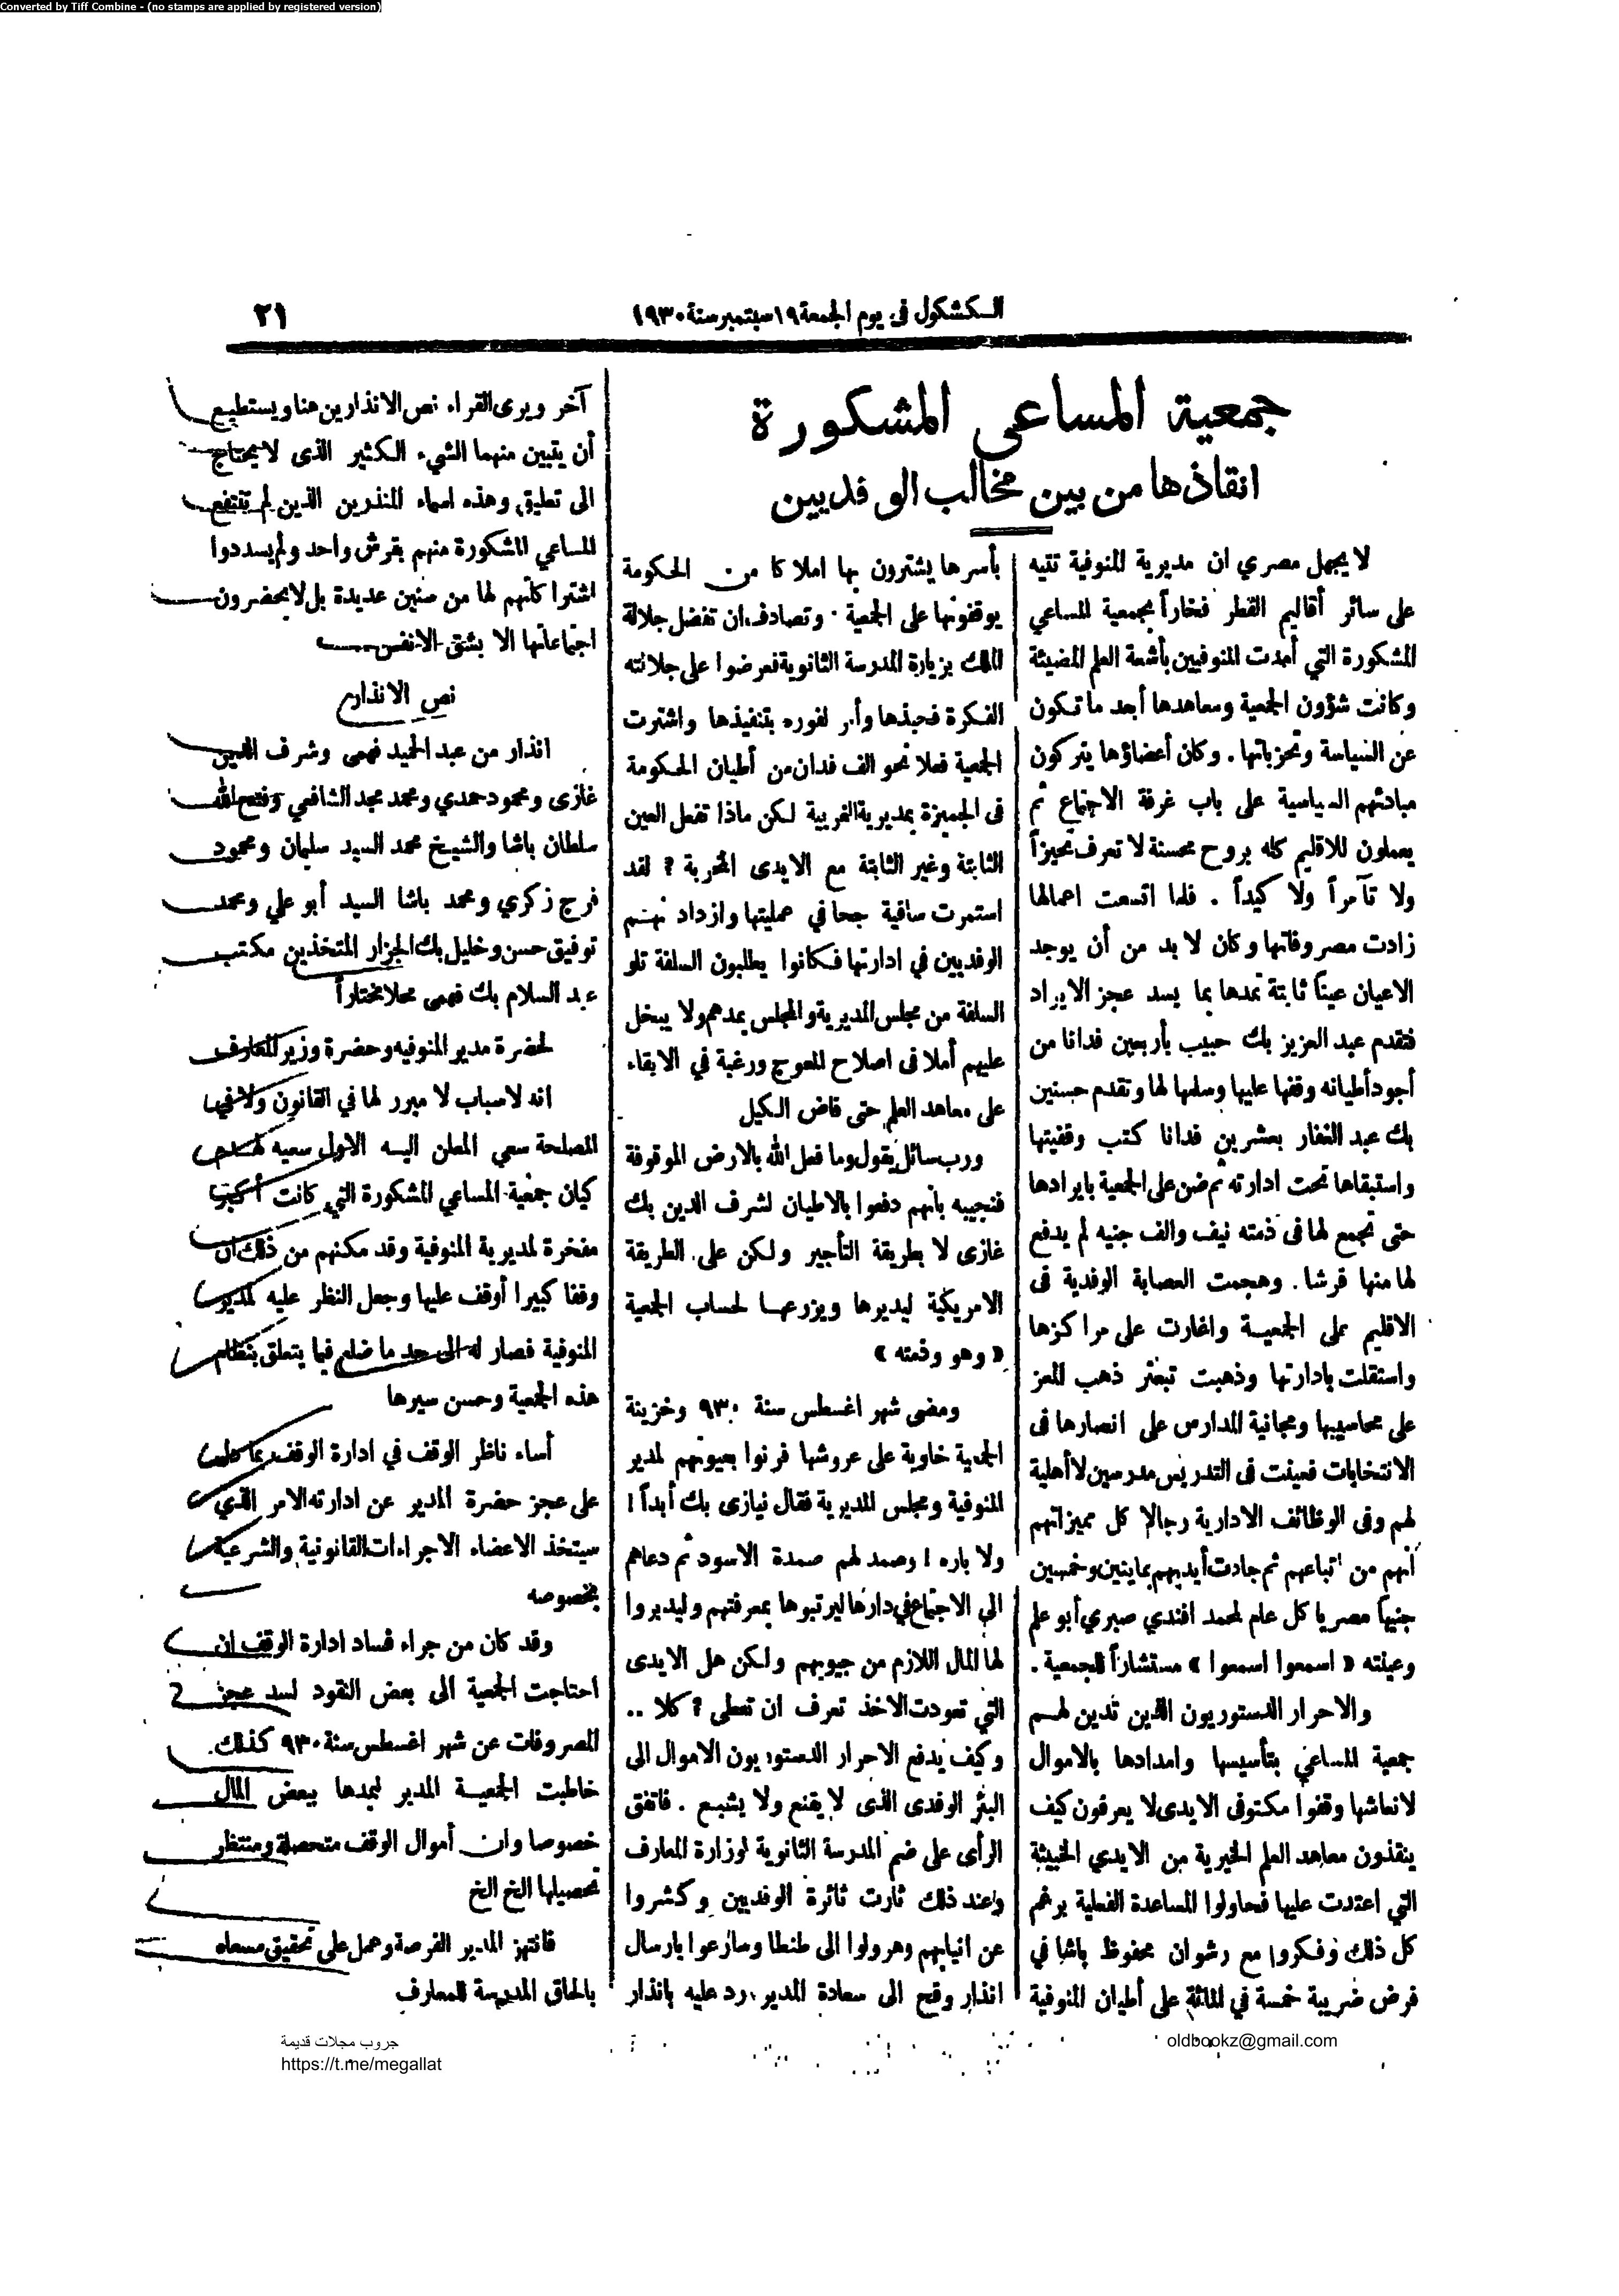 Converted by Tiff Combine - (no stamps are applied by registered version)
الكشكول في يوم الجمعة ١٩ سبتمبر سنة ١٩٣٠
٢١
جمعية المساعي المشكورة
انقاذها من بين مخالب الوفديين
لا يجهل مصري ان مديرية المنوفية تتيه
على سائر أقاليم القطر فخاراً بجمعية المساعي
المشكورة التي أمدت المنوفيين بأشعة العلم المضيئة
وكانت شؤون الجمعية ومعاهدها أبعد ما تكون
عن السياسة وتحزباتها . وكان أعضاؤها يتركون
مبادئهم السياسية على باب غرفة الاجتماع ثم
يعملون للاقليم كله بروح محسنة لا تعرف تحيزاً
ولا تآمراً ولا كيداً . فلما اتسعت اعمالها
زادت مصروفاتها وكان لا بد من أن يوجد
الاعيان عيناً ثابتة تمدها بما يسد عجز الايراد
فتقدم عبد العزيز بك حبيب بأربعين فدانا من
أجود أطيانه وقفها عليها وسلمها لها وتقدم حسنين
بك عبد الغفار بعشرين فدانا كتب وقفيتها
واستبقاها تحت ادارته ثم ضن على الجمعية بايرادها
حتى تجمع لها في ذمته نيف والف جنيه لم يدفع
لها منها قرشا . وهجمت العصابة الوفدية في
الاقليم على الجمعية واغارت على مراكزها
واستقلت بادارتها وذهبت تبعثر ذهب المعز
على محاسيبها ومجانية المدارس على انصارها في
الانتخابات فعينت في التدريس مدرسين لا أهلية
لهم وفي الوظائف الادارية رجالا كل مميزاتهم
أنهم من اتباعهم ثم جادت أيديهم بمايتين وخمسين
جنيهاً مصريا كل عام لمحمد افندي صبري أبو علم
وعينته « اسمعوا اسمعوا » مستشاراً للجمعية .
والاحرار الدستوريون الذين تدين لهم
جمعية المساعي بتأسيسها وامدادها بالاموال
لانعاشها وقفوا مكتوفي الايدي لا يعرفون كيف
ينقذون معاهد العلم الخيرية من الايدي الخبيثة
التي اعتدت عليها فحاولوا المساعدة الفعلية برغم
كل ذلك وفكروا مع رشوان محفوظ باشا في
فرض ضريبة خمسة في المائة على أطيان المنوفية
بأسرها يشترون بها املاكا من الحكومة
يوقفونها على الجمعية . وتصادف ان تفضل جلالة
الملك بزيارة المدرسة الثانوية فعرضوا على جلالته
الفكرة فحبذها وأمر لفوره بتنفيذها واشترت
الجمعية فعلا نحو الف فدان من أطيان الحكومة
في الجميزة بمديرية الغربية لكن ماذا تفعل العين
الثابتة وغير الثابتة مع الايدي المخربة ؟ لقد
استمرت ساقية جحا في عمليتها وازداد نهم
الوفديين في ادارتها فكانوا يطلبون السلفة تلو
السلفة من مجلس المديرية والمجلس يمدهم ولا يبخل
عليهم أملا في اصلاح المعوج ورغبة في الابقاء
على معاهد العلم حتى فاض الكيل
ورب سائل يقول وما فعل الله بالارض الموقوفة
فنجيبه بأنهم دفعوا بالاطيان لشرف الدين بك
غازي لا بطريقة التأجير ولكن على الطريقة
الامريكية ليديرها ويزرعها لحساب الجمعية
« وهو وذمته »
ومضى شهر اغسطس سنة ٩٣٠ وخزينة
الجمعية خاوية على عروشها فرنوا بعيونهم لمدير
المنوفية ومجلس المديرية فقال نيازي بك أبداً !
ولا باره ! وصمد لهم صمدة الاسود ثم دعاهم
الى الاجتماع في دارها ليرتبوها بمعرفتهم وليدبروا
لها المال اللازم من جيوبهم ولكن هل الايدي
التي تعودت الاخذ تعرف ان تعطى ؟ كلا ..
وكيف يدفع الاحرار الدستوريون الاموال الى
البئر الوفدي الذي لا يقنع ولا يشبع . فاتفق
الرأى على ضم المدرسة الثانوية لوزارة المعارف
وعند ذلك ثارت ثائرة الوفديين وكشروا
عن انيابهم وهرولوا الى طنطا وسارعوا بارسال
انذار وقح الى سعادة المدير ، رد عليه بانذار
آخر ويرى القراء نص الانذارين هنا ويستطيع
أن يتبين منهما الشيء الكثير الذي لا يحتاج
الى تعليق وهذه اسماء المنذرين الذين لم تنتفع
المساعي المشكورة منهم بقرش واحد ولم يسددوا
اشتراكاتهم لها من سنين عديدة بل لا يحضرون
اجتماعاتها الا بشق الانفس
نص الانذار
انذار من عبد الحميد فهمى وشرف الدين
غازي ومحمود حمدي ومحمد مجد الشافعي وفتح الله
سلطان باشا والشيخ محمد السيد سليمان ومحمود
فرج زكري ومحمد باشا السيد أبو علي ومحمد
توفيق حسن وخليل بك الجزار المتخذين مكتب
عبد السلام بك فهمى محلا مختاراً
لحضرة مدير المنوفيه وحضرة وزير المعارف
انه لاسباب لا مبرر لها في القانون ولا في
المصلحة سعي المعلن اليه الاول سعيه لهدم
كيان جمعية المساعي المشكورة التي كانت أكبر
مفخرة لمديرية المنوفية وقد مكنهم من ذلك ان
وقفا كبيرا أوقف عليها وجعل النظر عليه لمدير
المنوفية فصار له الى حد ما ضلع فيما يتعلق بنظام
هذه الجمعية وحسن سيرها
أساء ناظر الوقف في ادارة الوقف بما دلت
على عجز حضرة المدير عن ادارته الامر الذي
سيتخذ الاعضاء الاجراءات القانونية والشرعية
بخصوصه
وقد كان من جراء فساد ادارة الوقف ان
احتاجت الجمعية الى بعض النقود لسد عجز
المصروفات عن شهر اغسطس سنة ٩٣٠ كذلك .
خاطبت الجمعية المدير ليمدها ببعض المال
خصوصا وان أموال الوقف متحصلة ومنتظر
تحصيلها الخ الخ
فانتهز المدير الفرصة وعمل على تحقيق مسعاه
بالحاق المدرسة للمعارف
جروب مجلات قديمة
https://t.me/megallat
oldbookz@gmail.com